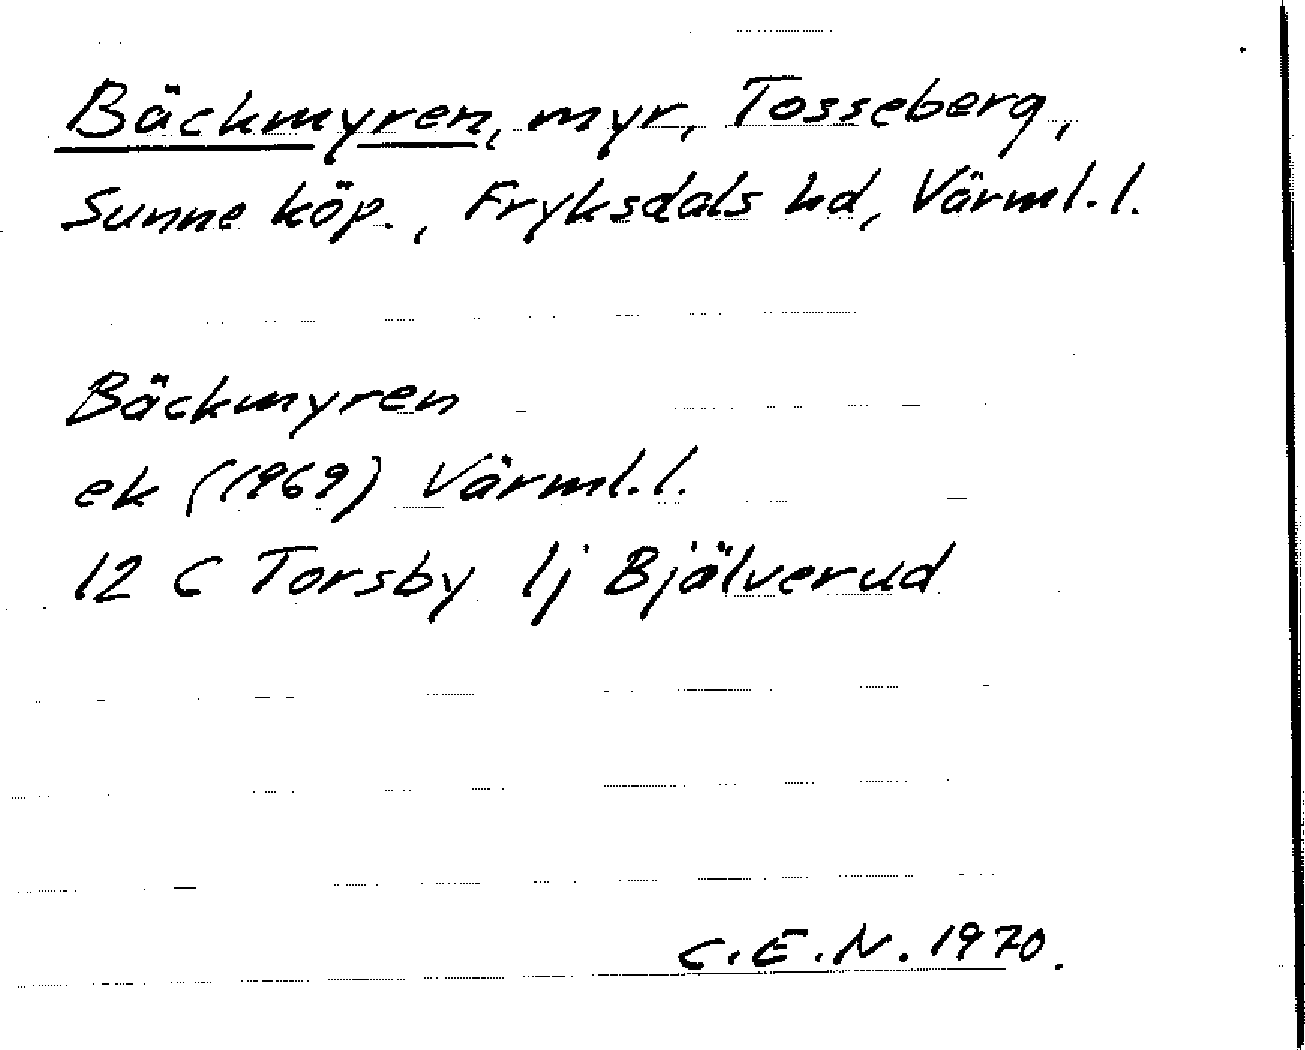 Bäckmyren, myr, Tosseberg,
Sunne köp., Fryksdals hd, Värml. l.
Bäckmyren
ek (1969) Värml. l.
12 C Torsby 1j Bjälverud
C. E. N. 1970.